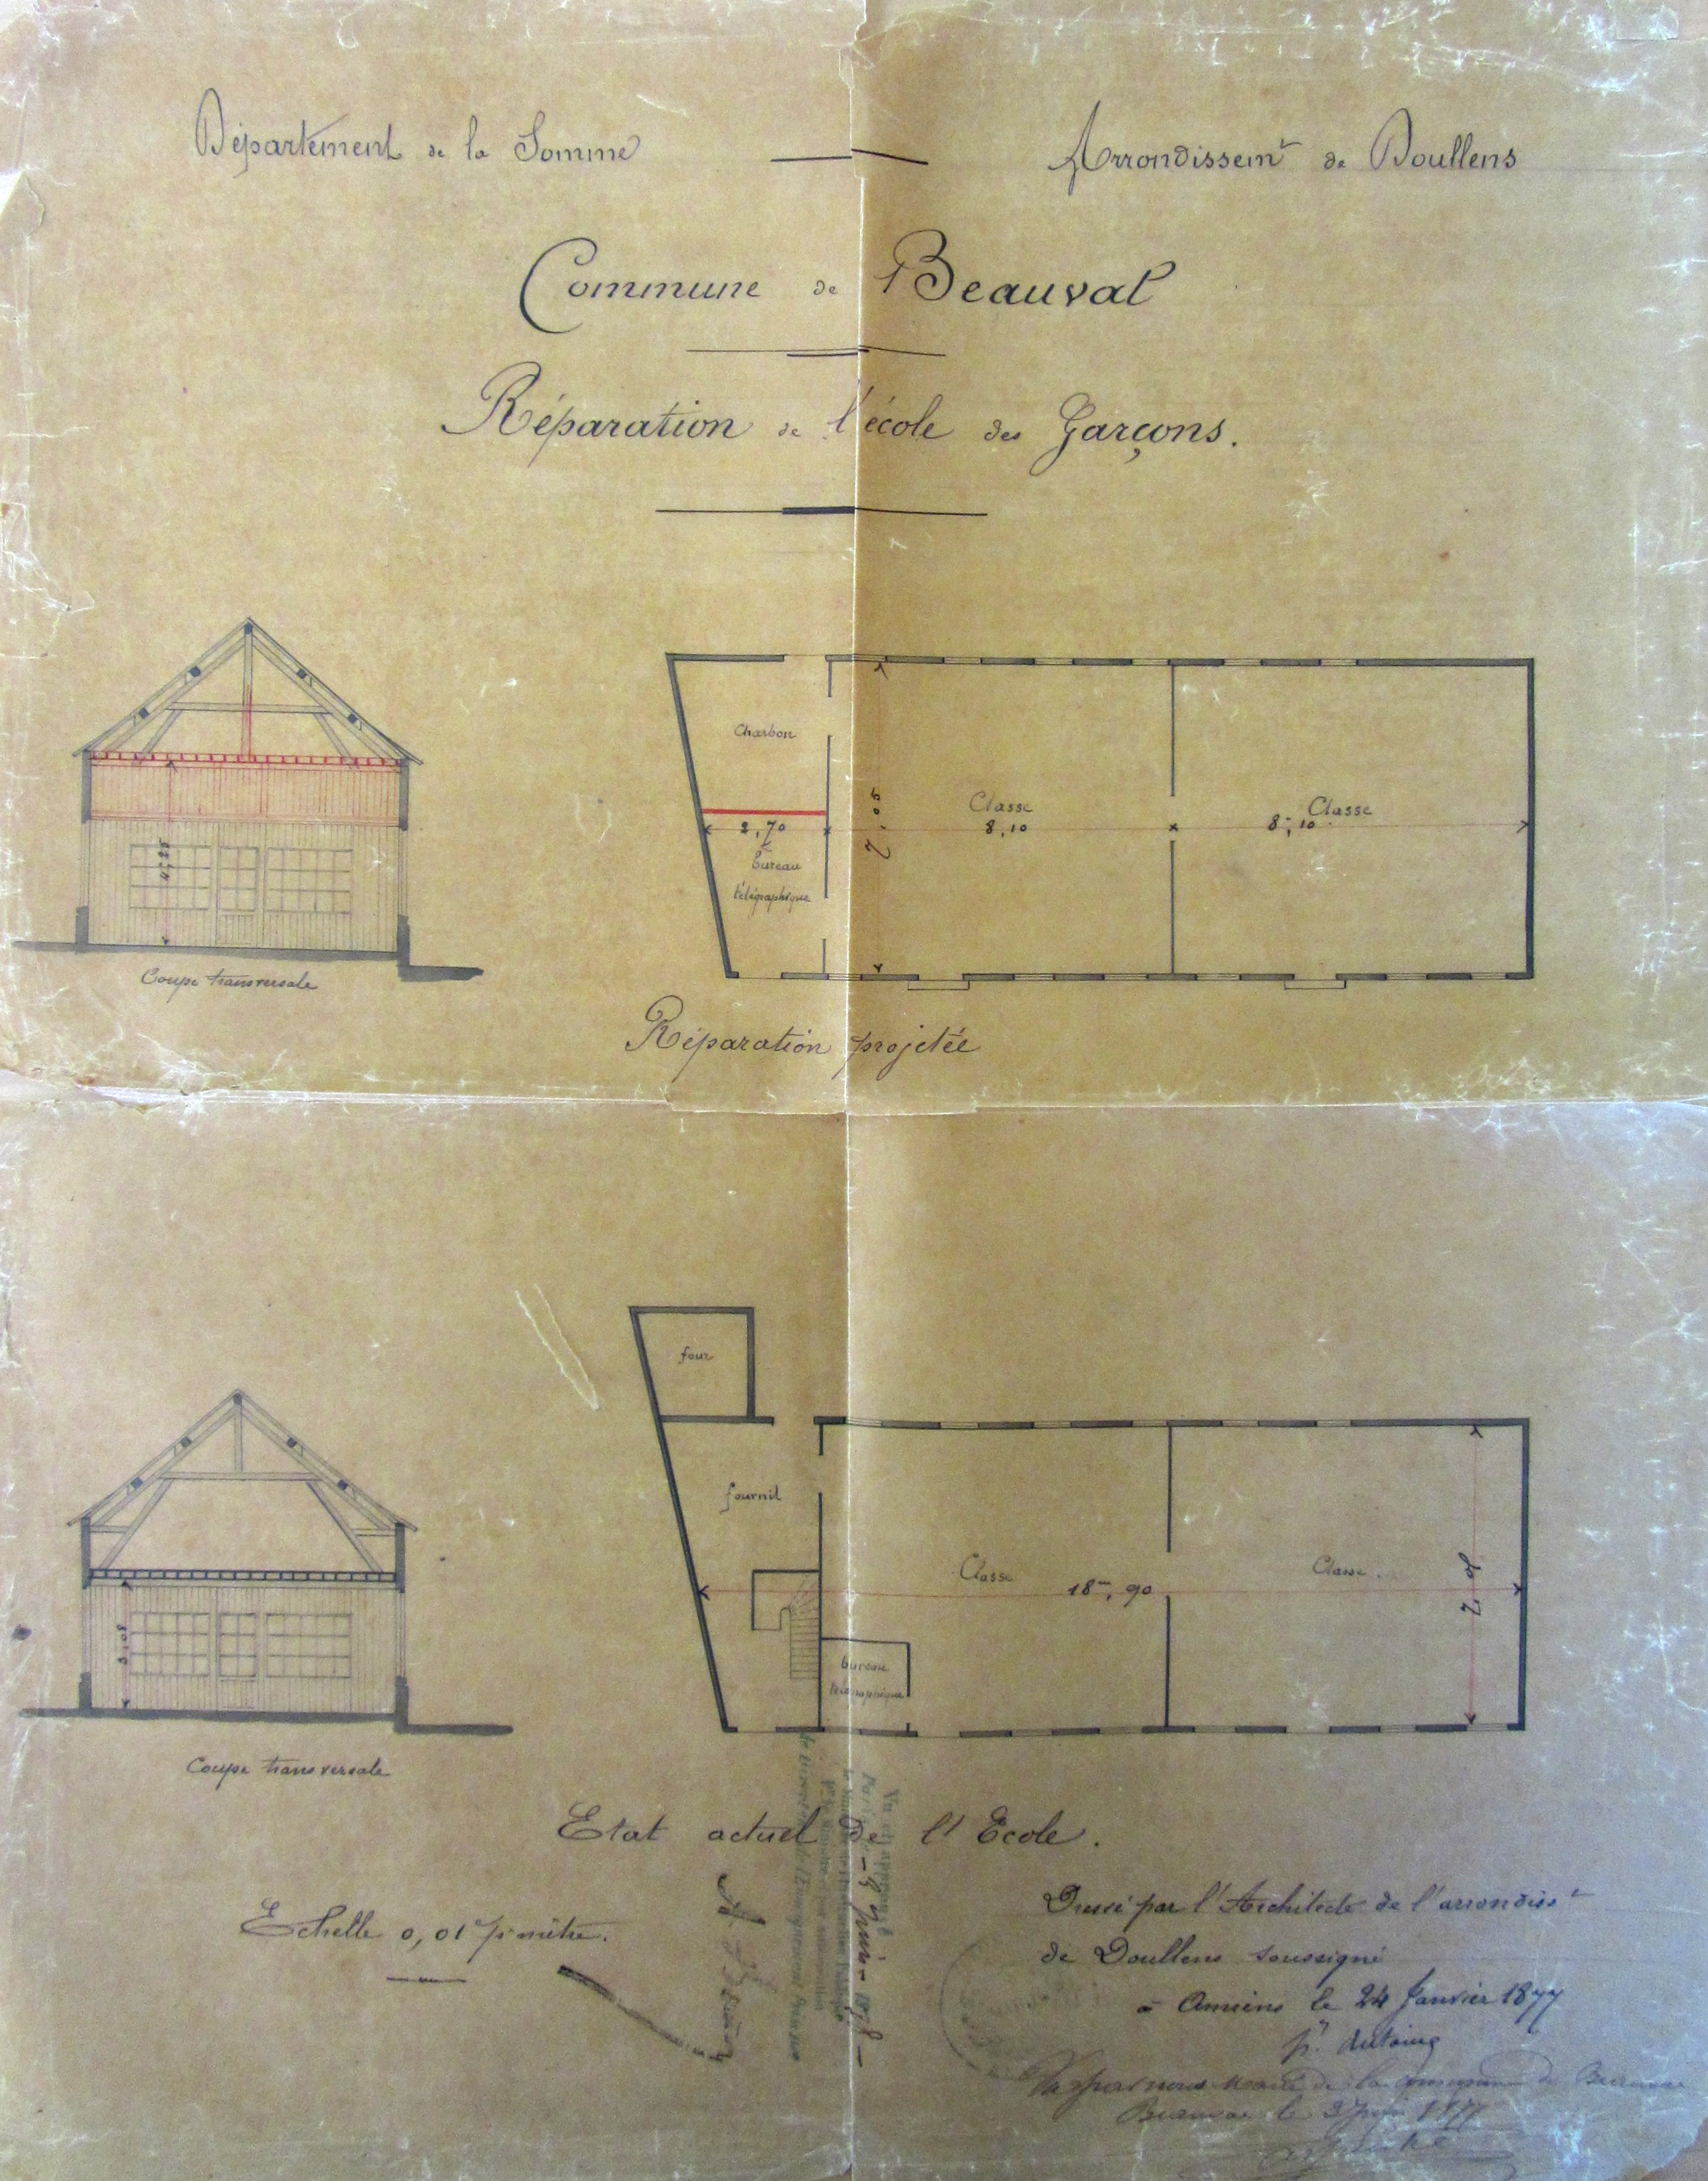 Département de la Somme
Arrondissemt de Doullens
Commune de Beauval
Réparation de l'école des Garçons.
Charbon
Classe
8,10
Classe
8m,10
2,70
7,05
bureau
télégraphique
Coupe transversale
Réparation projetée
four
fournil
Classe
18m,90
Classe.
3,08
bureau
télégraphique
Coupe transversale
Etat actuel de l'Ecole.
Echelle 0,01 pr mètre.
Dressé par l'Architecte de l'arrondisst
de Doullens soussigné
à Amiens le 24 Janvier 1877
Vu par nous Maire de la commune de Beauval
Beauval le 1877